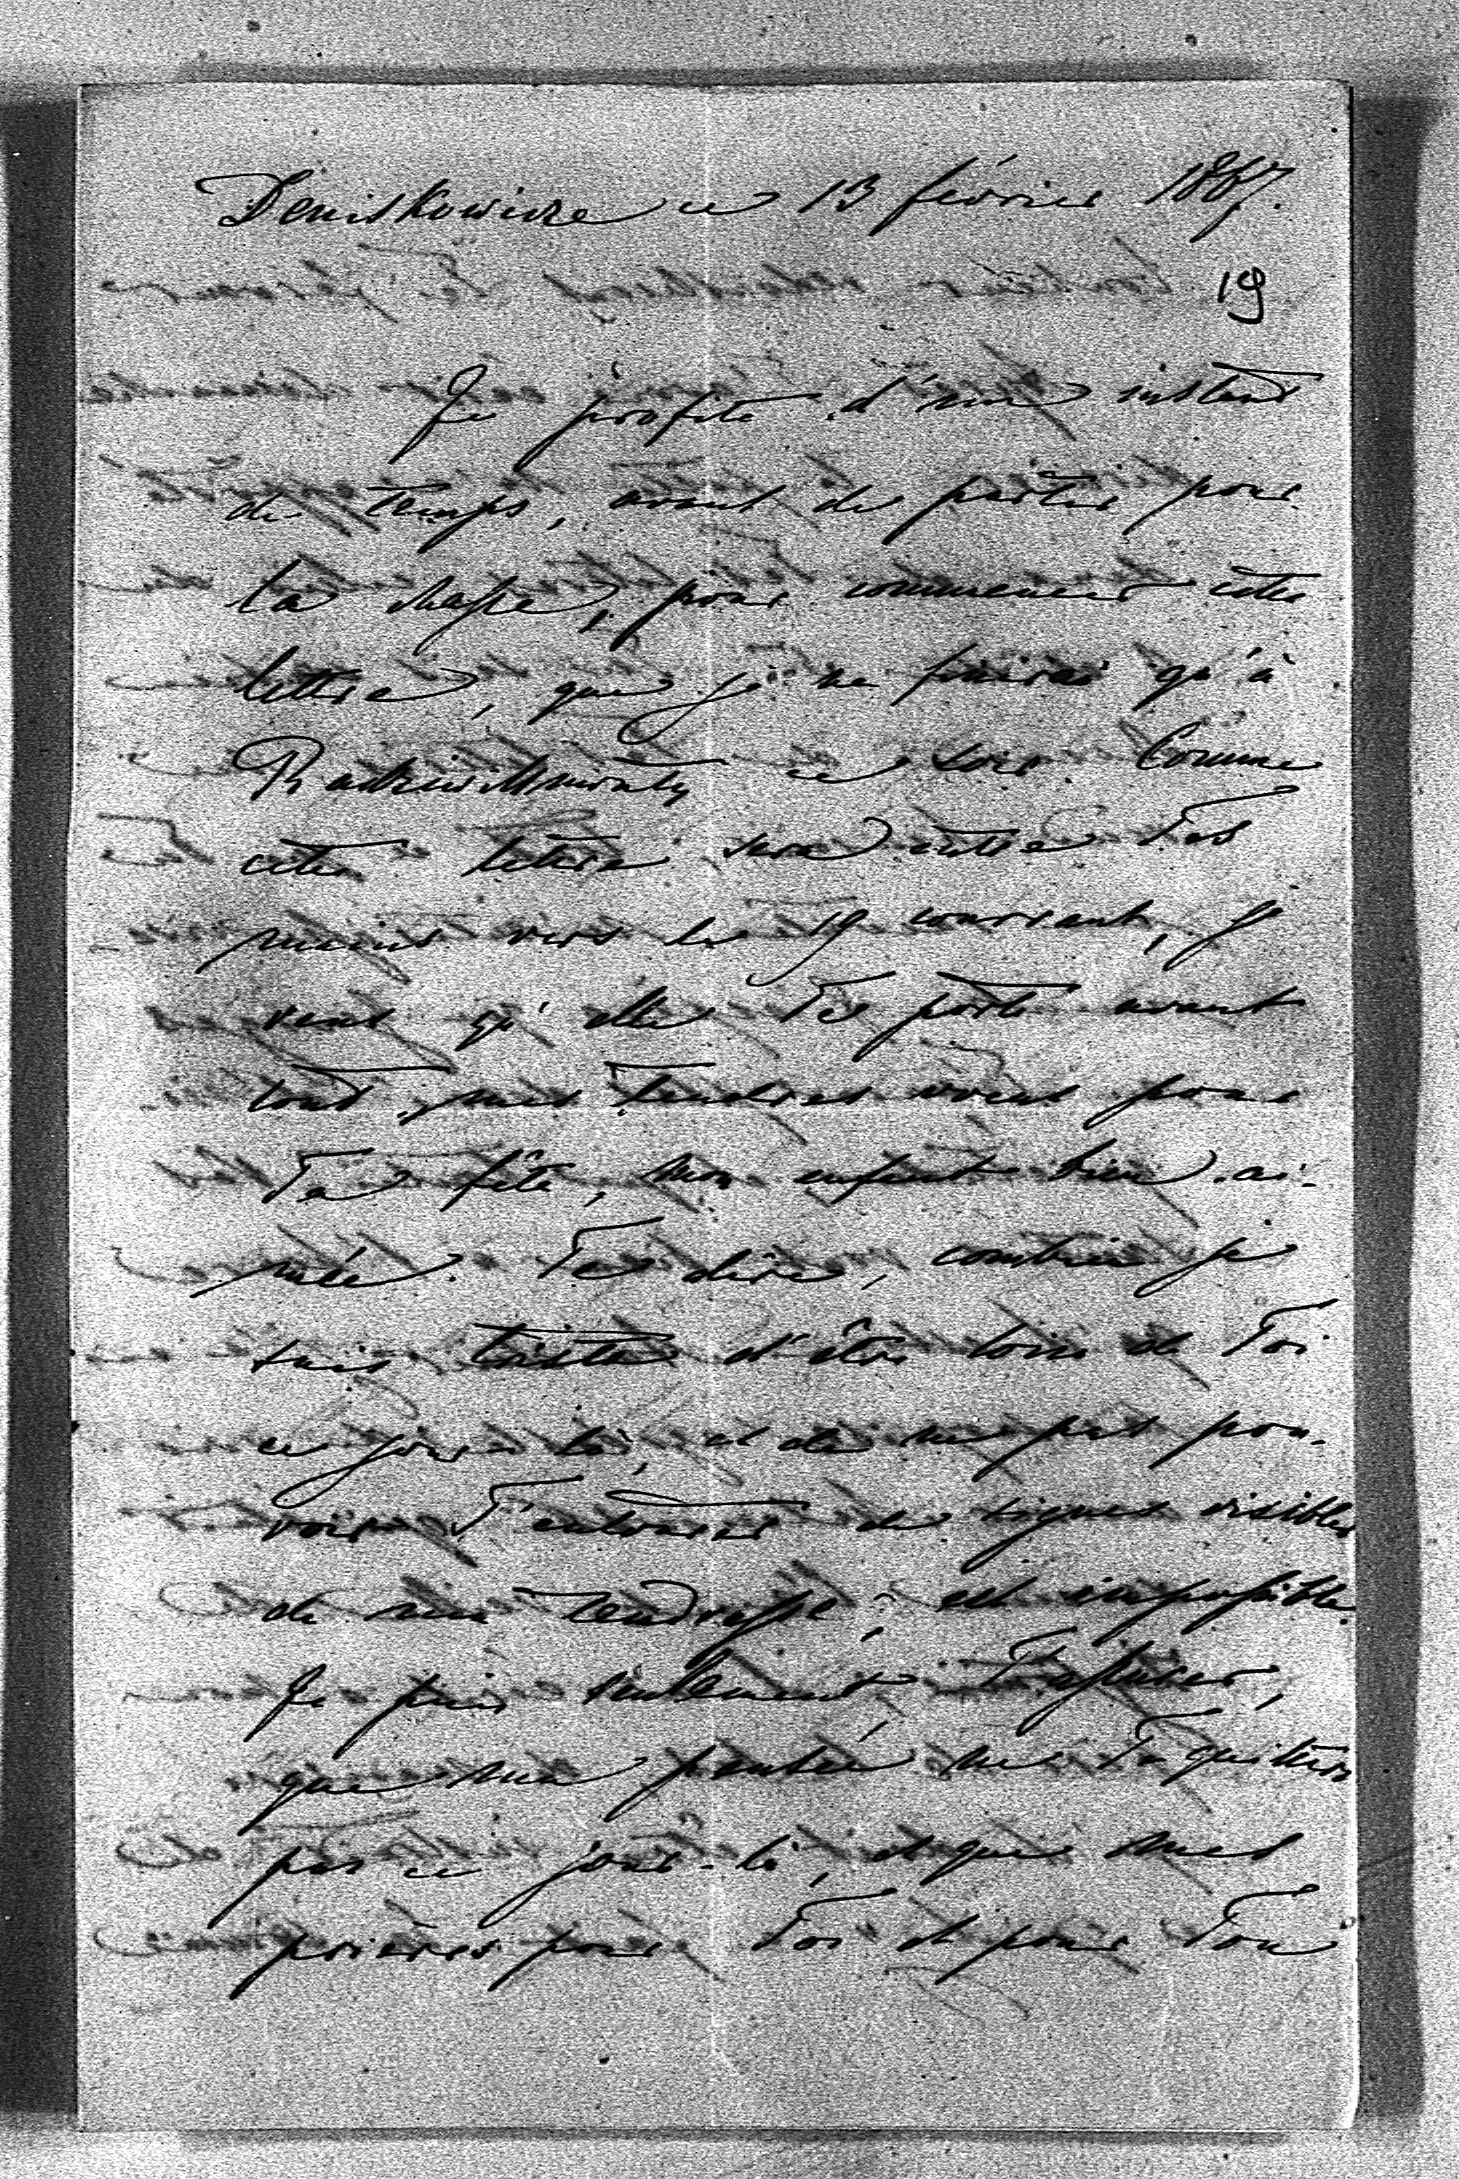 Deniskowicze ce 13 février 1887.
19
Je profite d'un instant
de temps, avant de partir pour
la chasse, pour commencer cette
lettre, que je ne finirai qu'à
Radziwillmonty ce soir. Comme
cette lettre sera entre Tes
mains vers le 19 courrant, je
veux qu'elle Te porte avant
tout, mes tendres vœux pour
Ta fête, mon enfant bien-ai-
mée. Te dire, combien je
suis triste d'être loin de Toi
ce jour-là, et de ne pas pou-
voir T'entourer de signes visibles
de ma tendresse, est impossible.
Je puis seulement T'assurer,
que ma pensée ne Te quittera
pas ce jour-là, et que mes
prières pour Toi et pour Ton